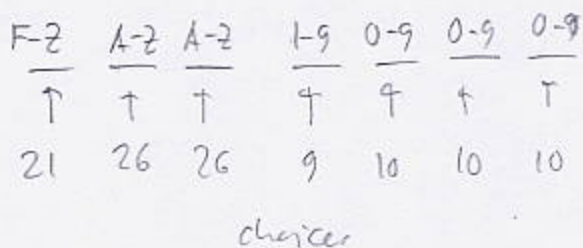 F-Z A-Z A-Z 1-9 0-9 0-9 0-9
21 26 26 9 10 10 10
choices